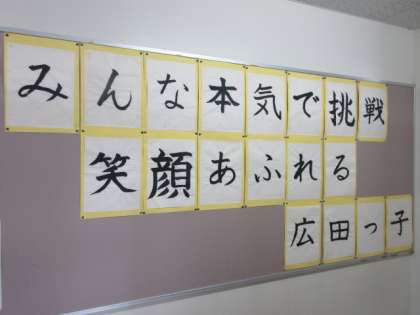 みんな本気で挑戦
笑顔あふれる
広田っ子